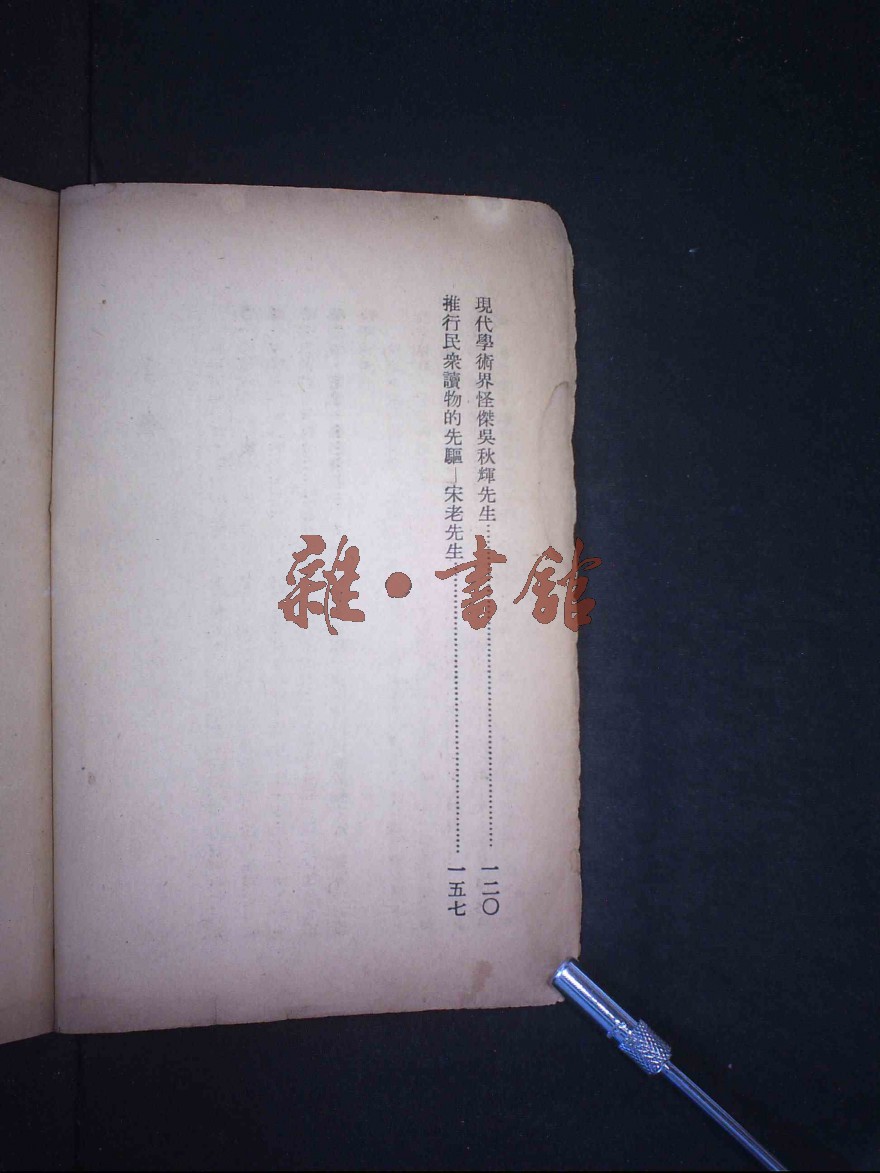 現代學術界怪傑吳秋輝先生……………………………………一二〇
推行民衆讀物的先驅—宋老先生……………………………………一五七
雜·書館